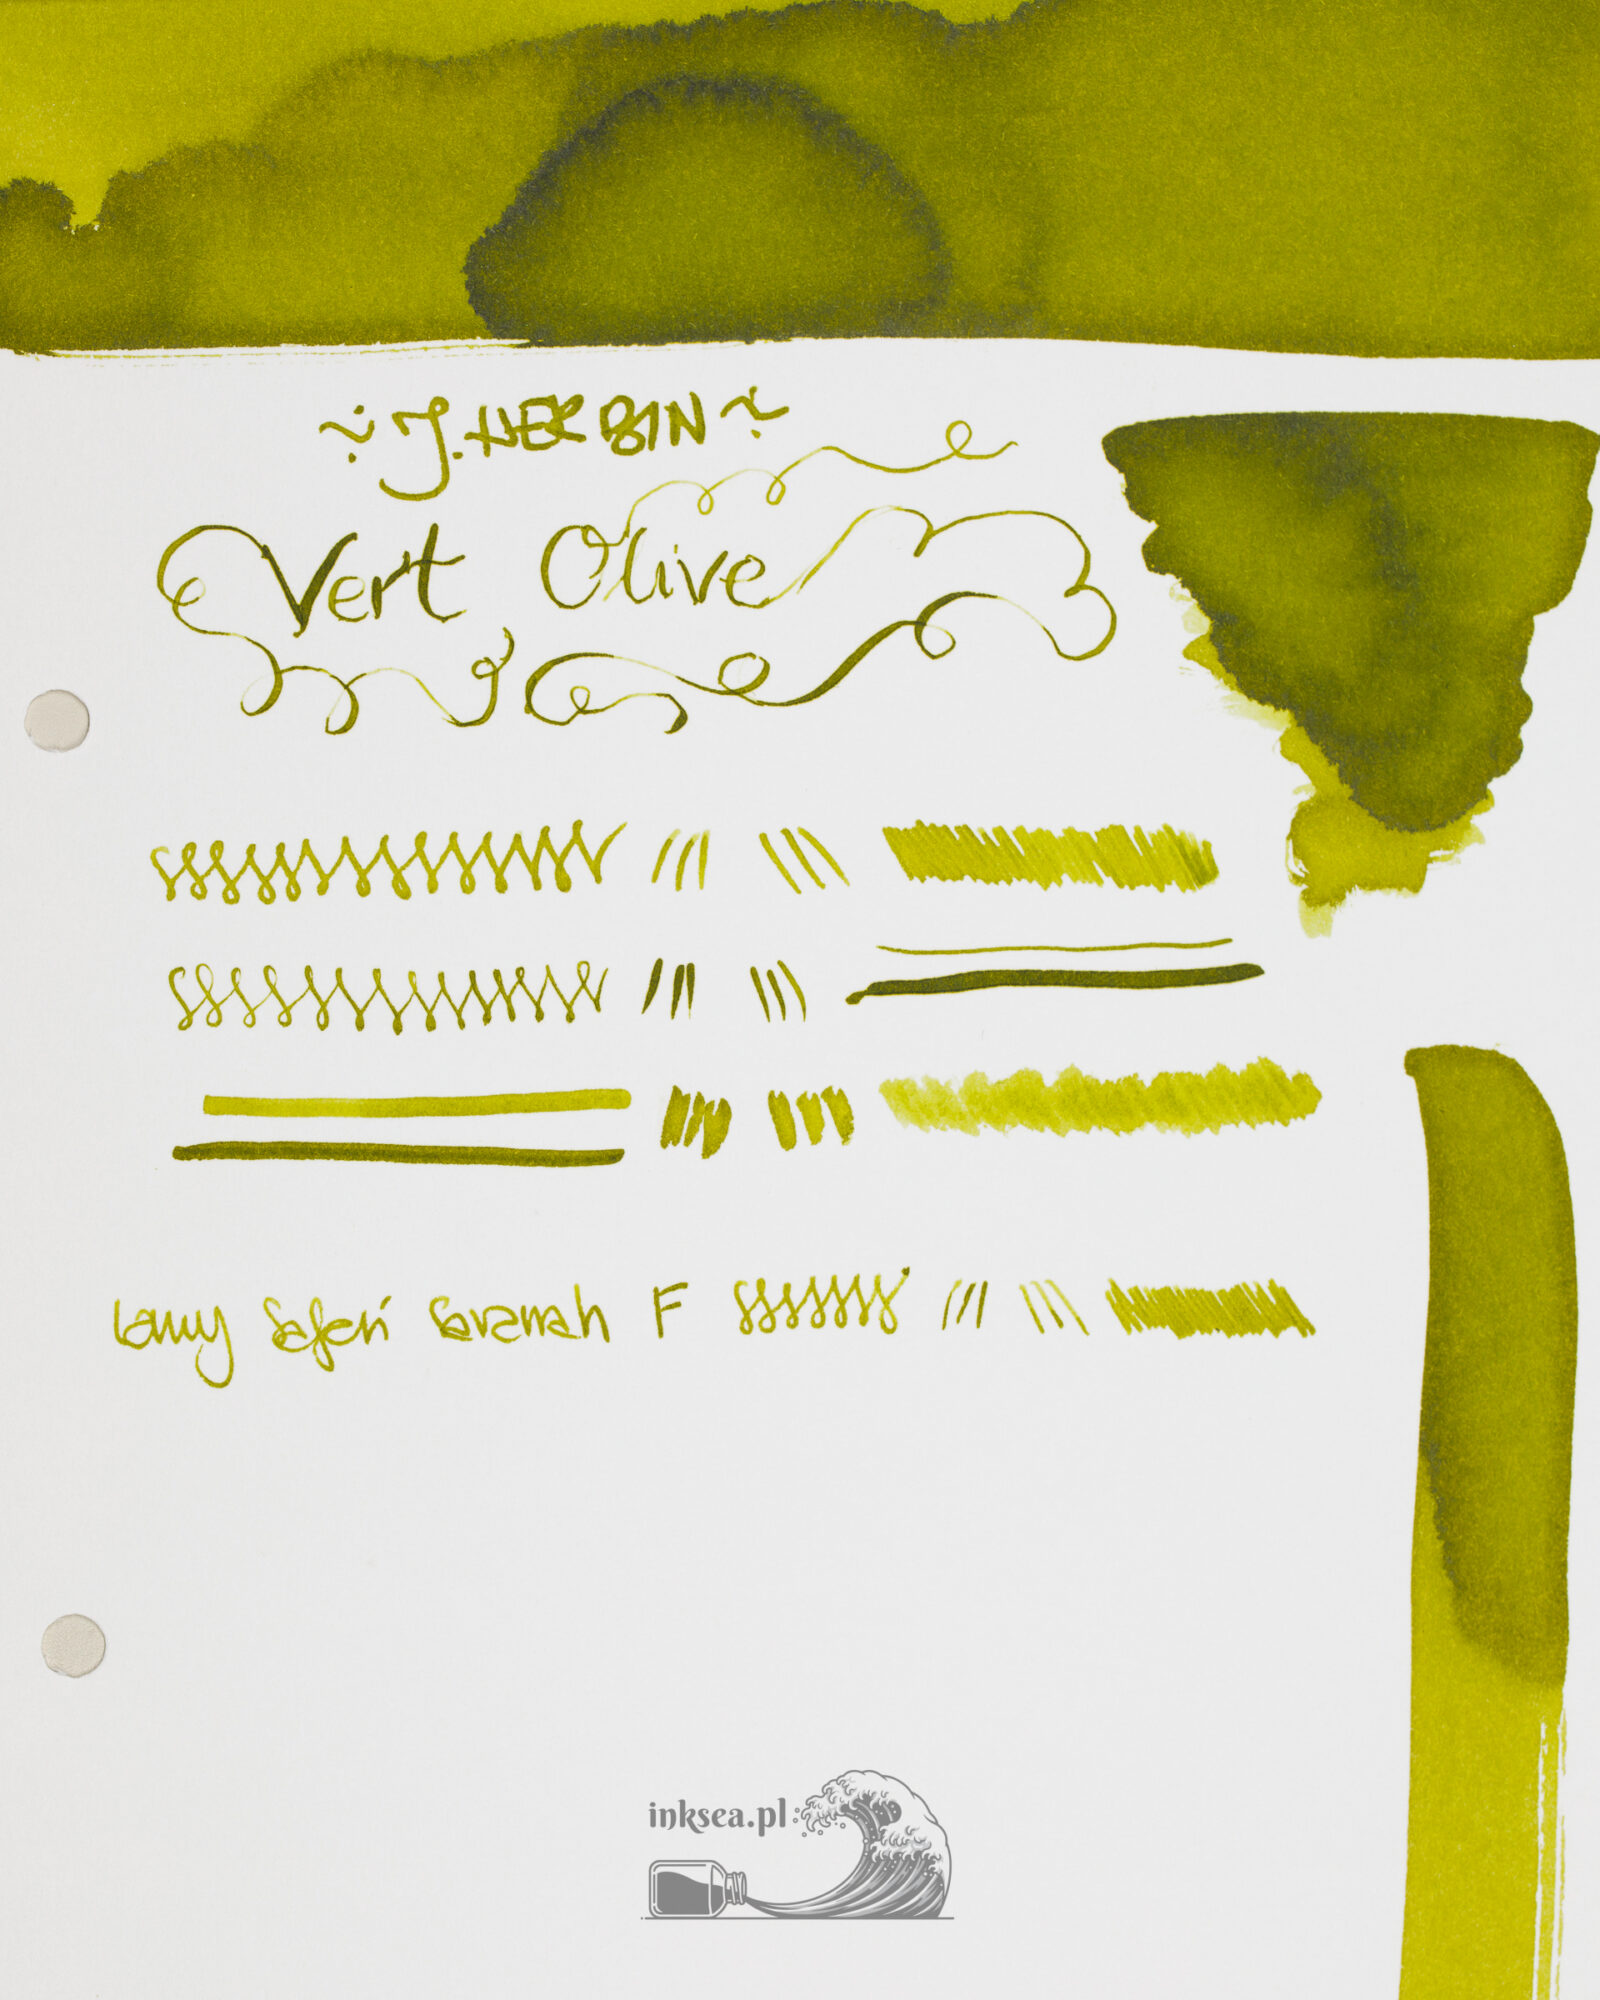 ~ J. HERBIN ~
Vert Olive
Lamy Safari Savannah F
inksea.pl